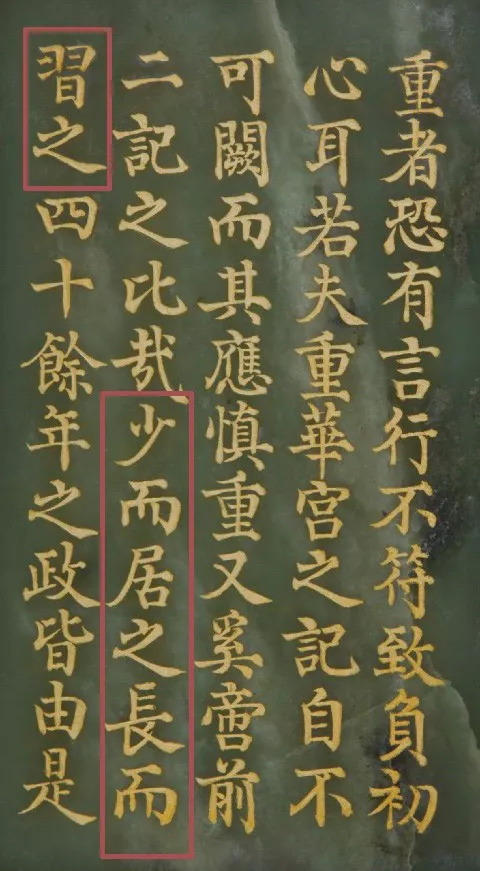 重者恐有言行不符致負初
心耳若夫重華宮之記自不
可闕而其應慎重又奚啻前
二記之比哉少而居之長而
習之四十餘年之政皆由是